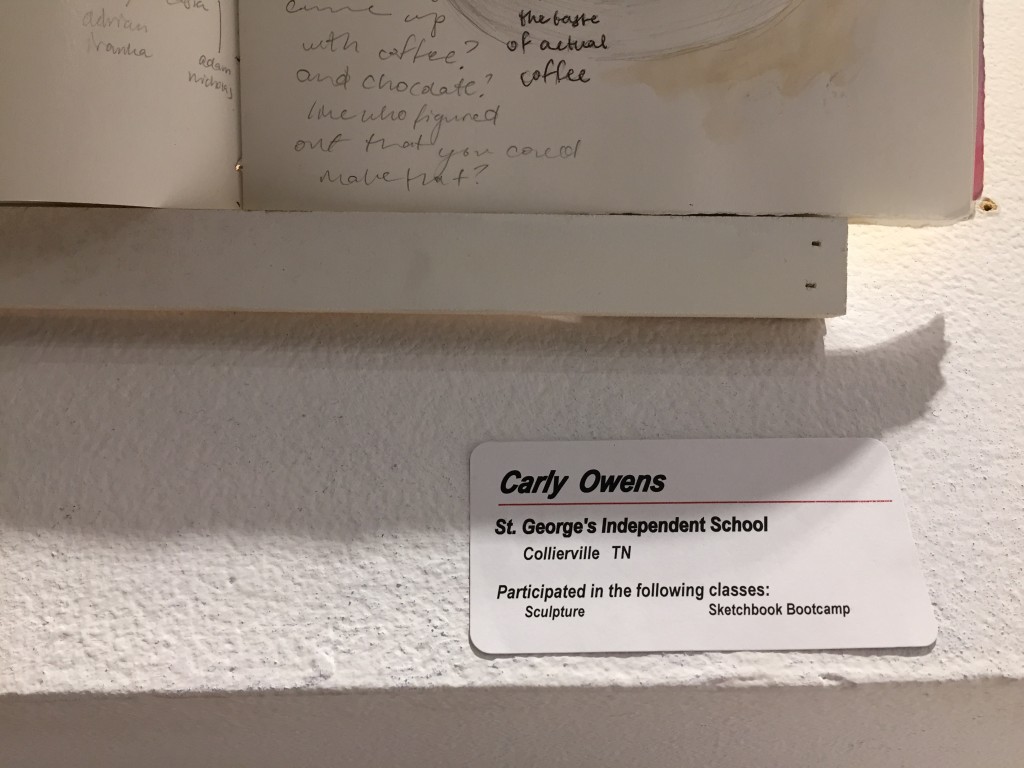 adrian
adam
come up
with coffee?
and chocolate?
like who figured
out that you could
make that?
the taste
of actual
coffee
Carly Owens
St. George's Independent School
Collierville TN
Participated in the following classes:
Sculpture Sketchbook Bootcamp